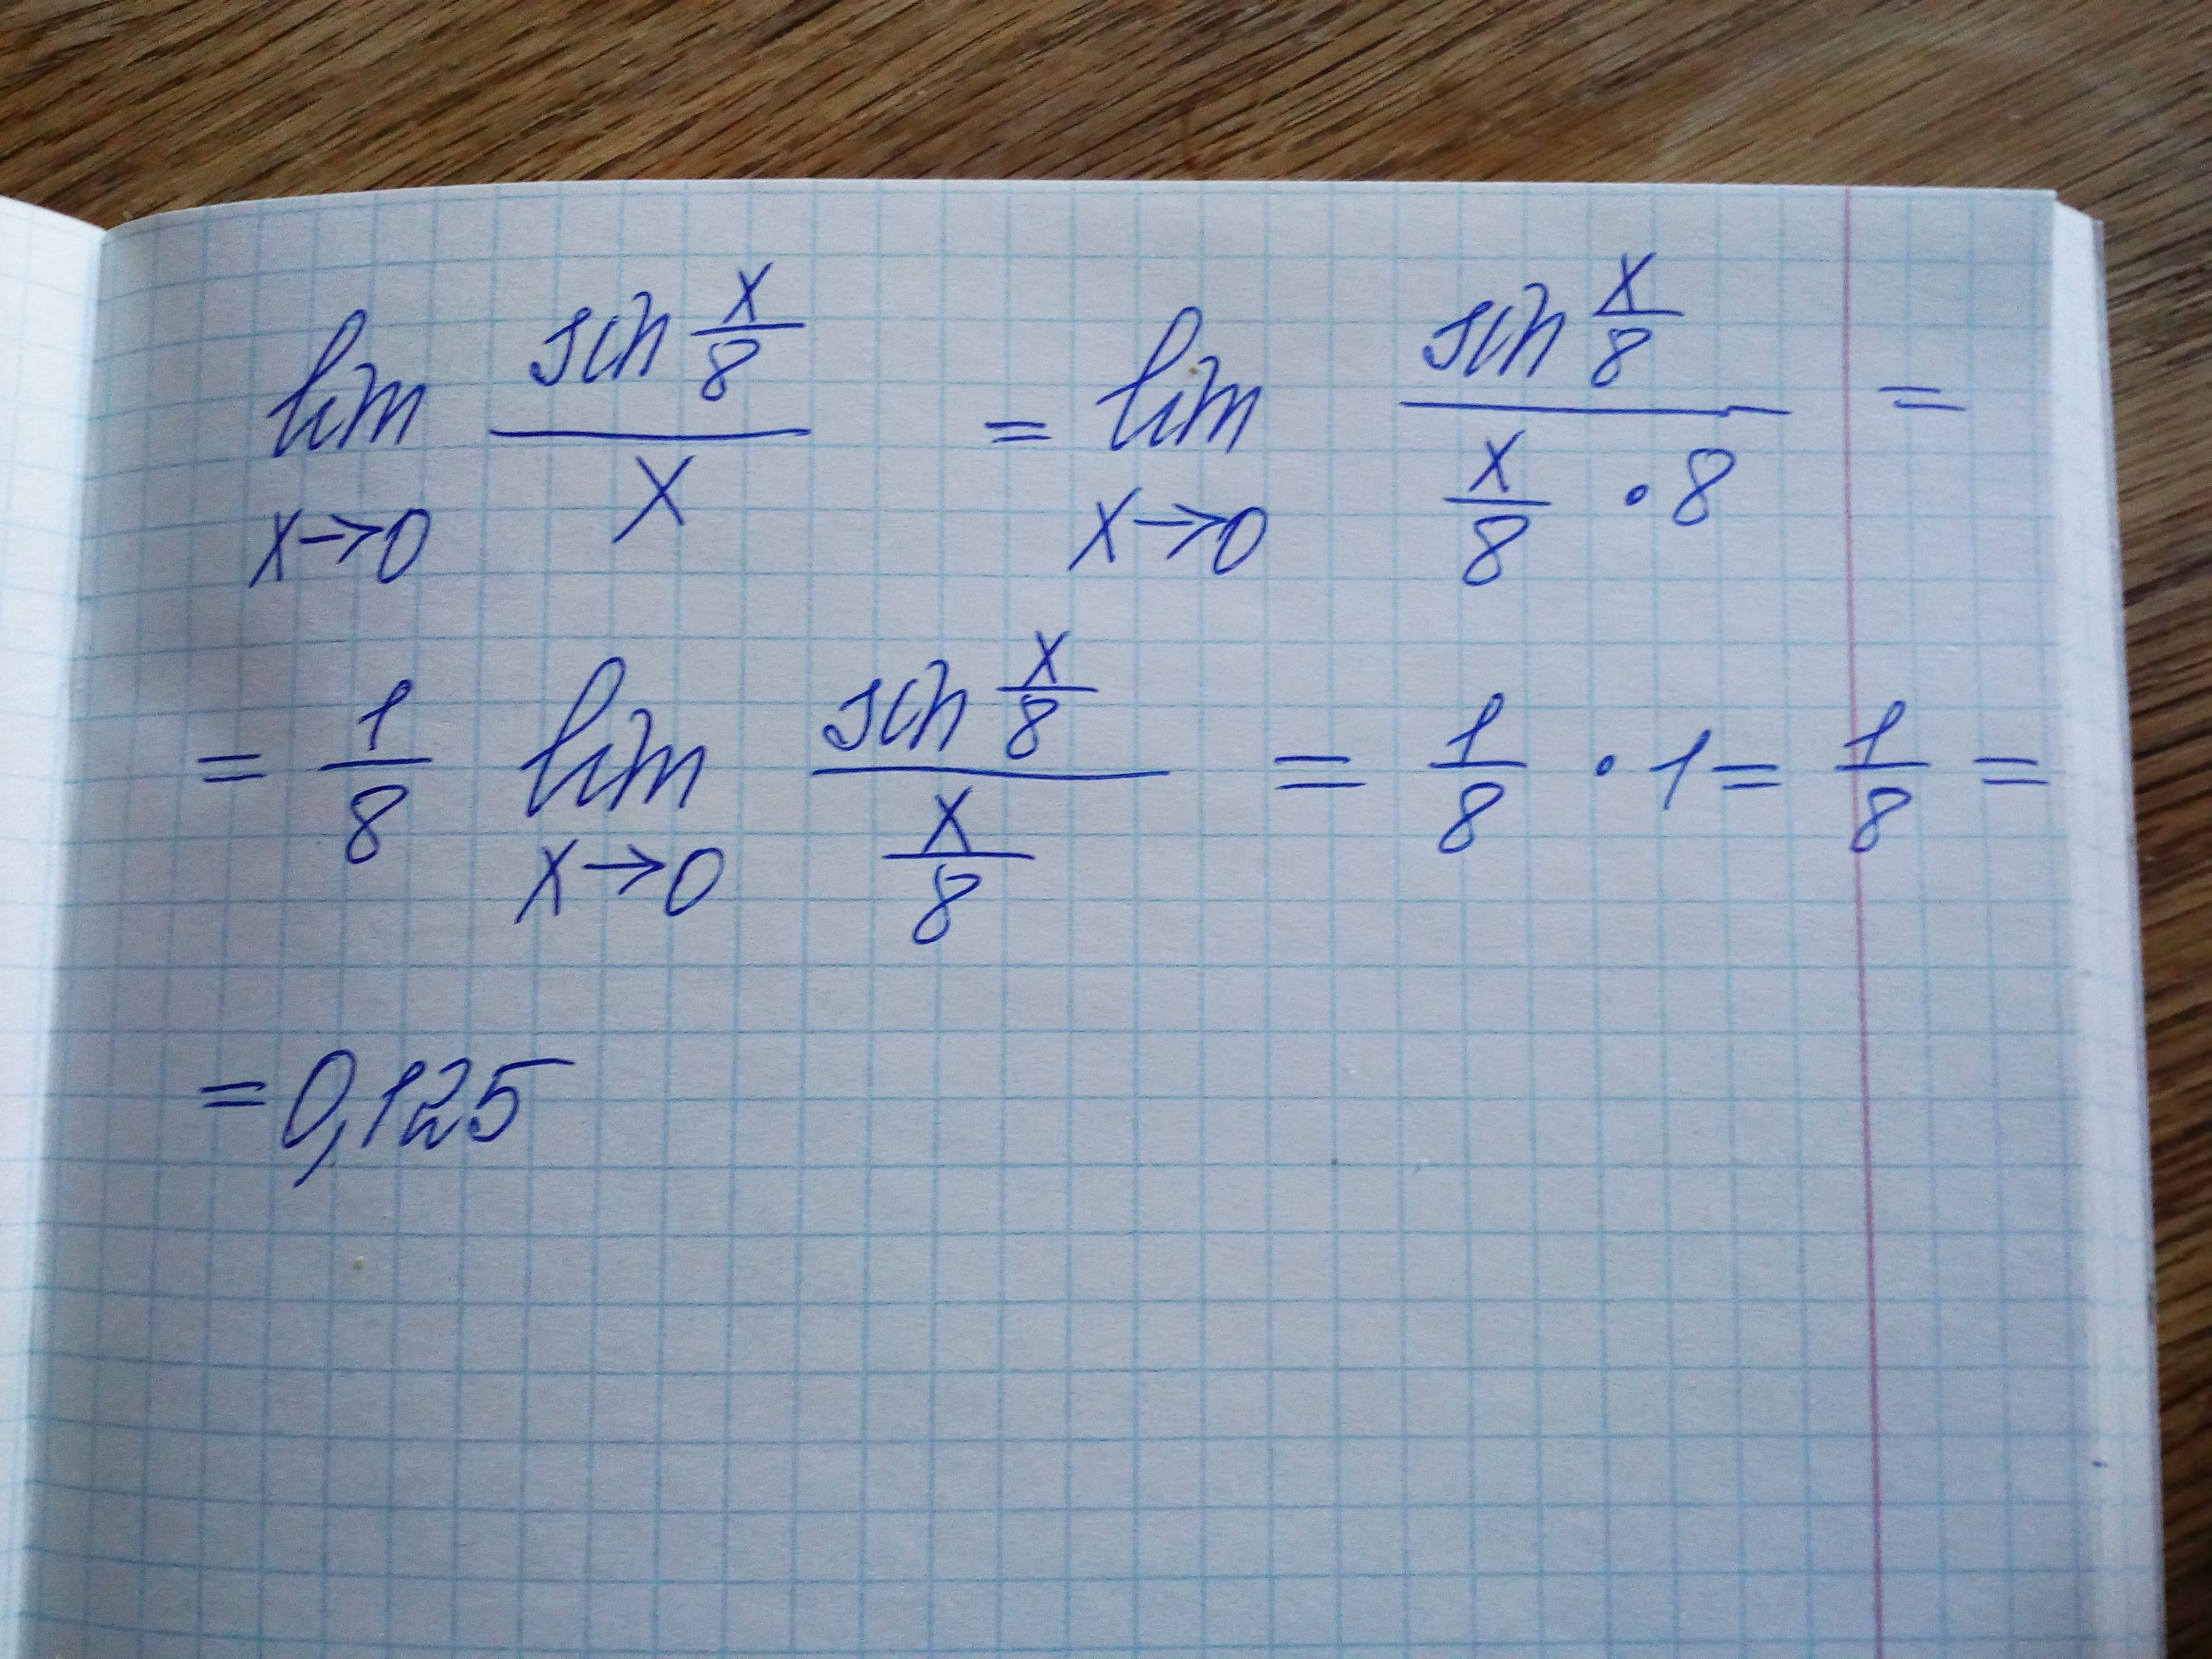 lim x→0 sin x/8 / x = lim x→0 sin x/8 / x/8 · 8 =
= 1/8 lim x→0 sin x/8 / x/8 = 1/8 · 1 = 1/8 =
= 0,125